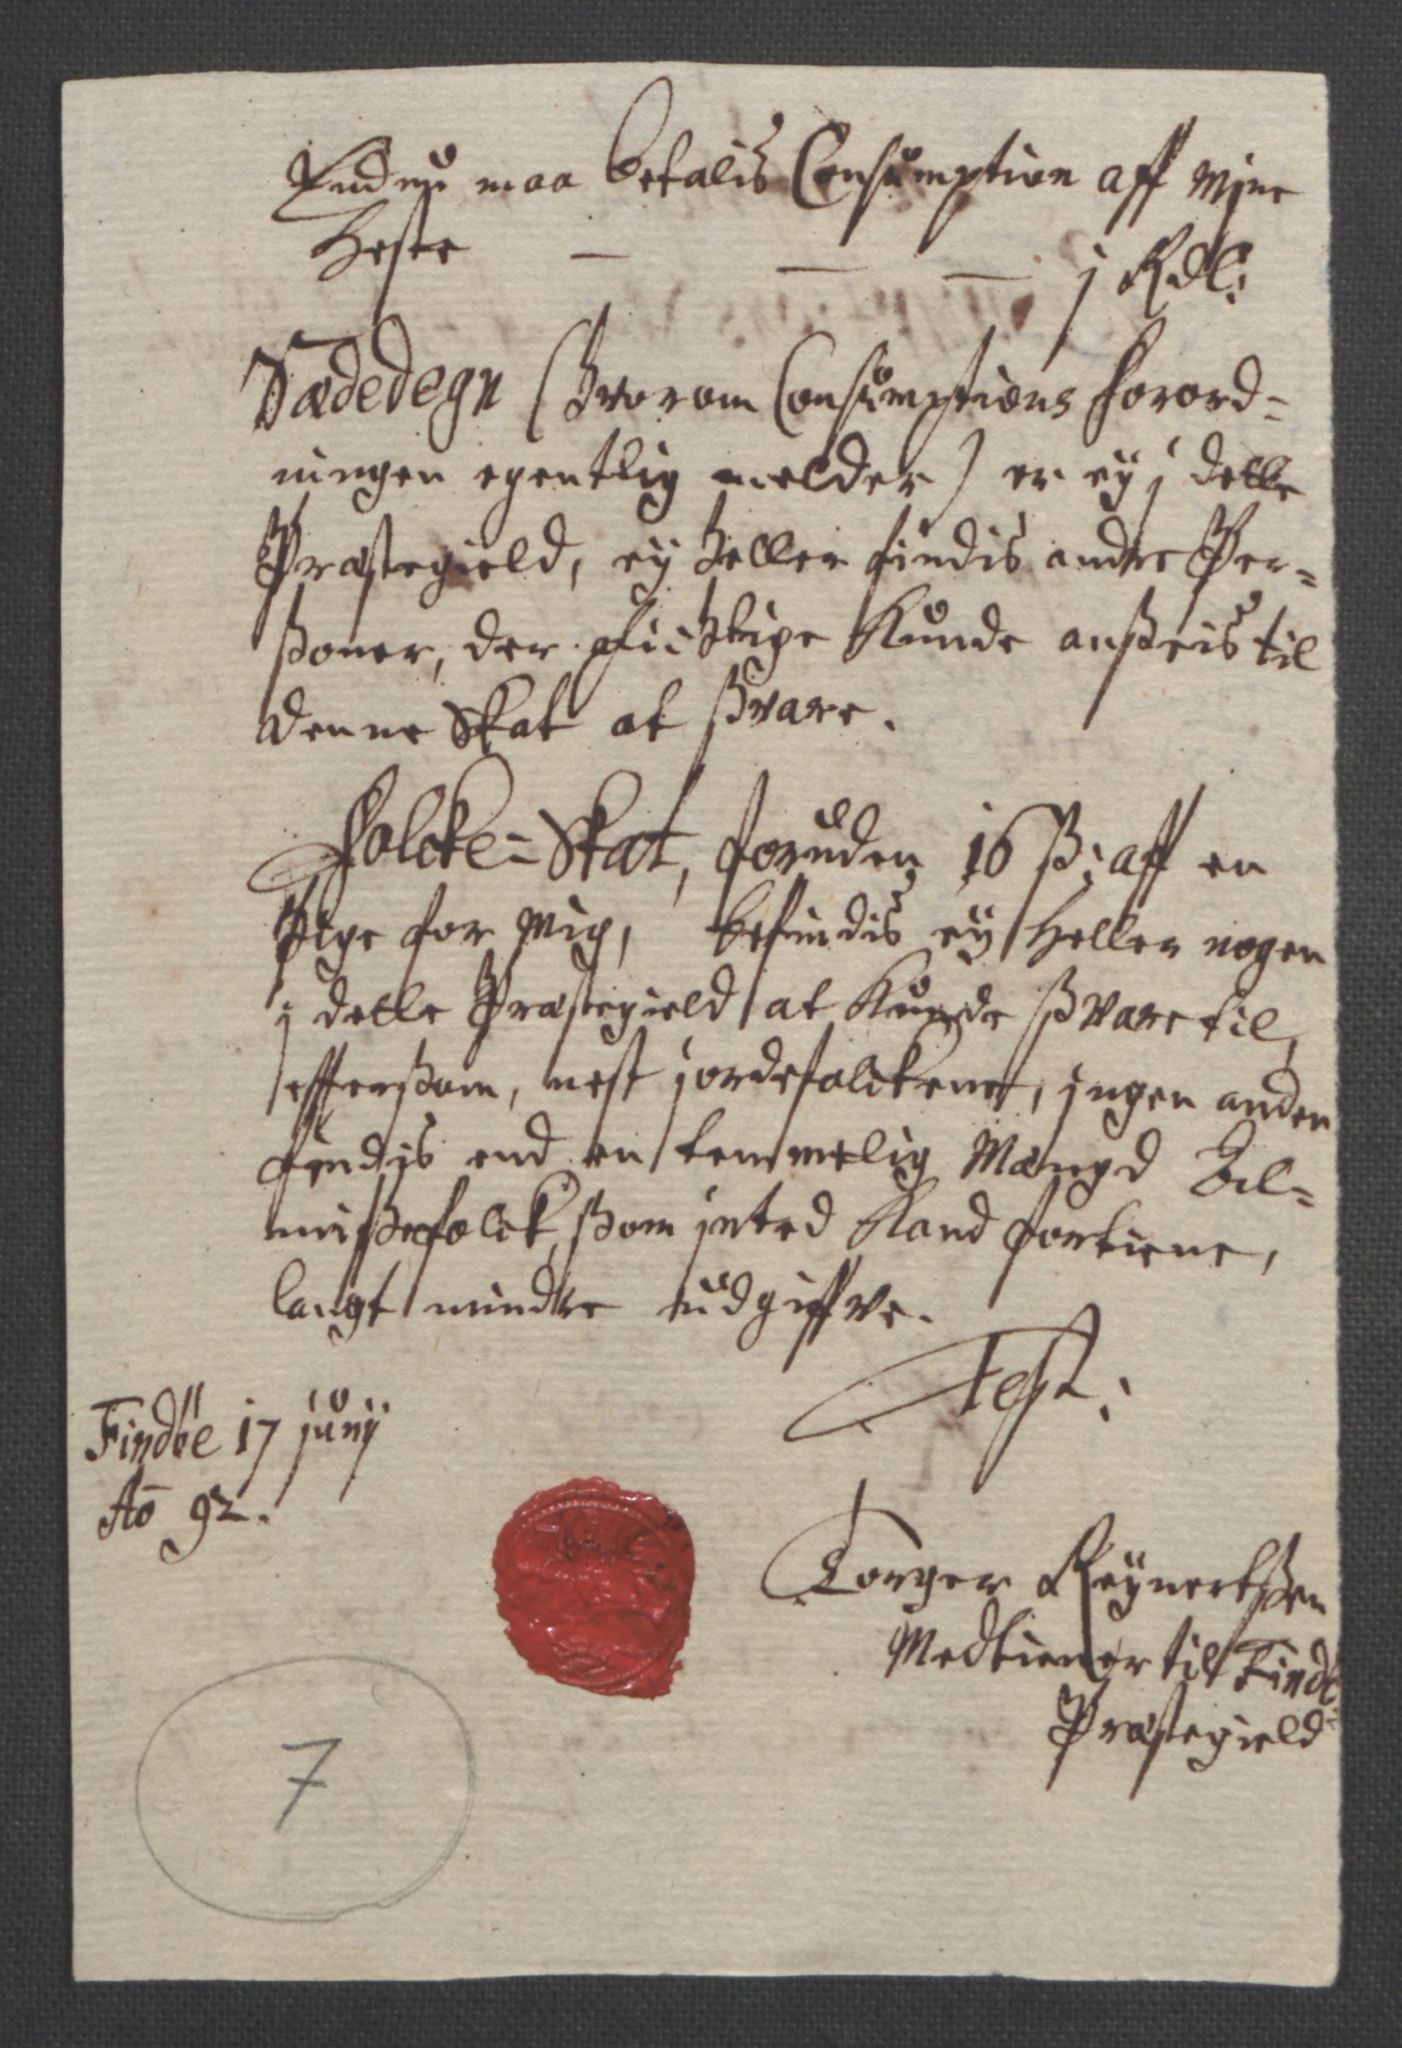 Endnu maa betalis Consumption aff mine
Heste — — — j Rdl:
Sædedegn (hvorom Consumptions forord-
ningen egentlig melder) er ey j dette
Præstegield, ey heller findis andre Per-
ßoner, der Kunde anßeis til
denne Skat at ßvare.
Folcke-Skat, foruden 16 ß: aff en
Pige for mig, befindis ey heller nogen
j dette Præstegield at Kunde ßvare til,
effterßom, nest jordefolckene, jngen anden
findis end en temmelig Mængd Al-
mißefolck, ßom jnted Kand fortiene,
langt mindre udgiffve.
Test:
Findöe 17 junij
Ao 92.
Torger Reynertßen
Medtiener til Findö
Præstegield
7